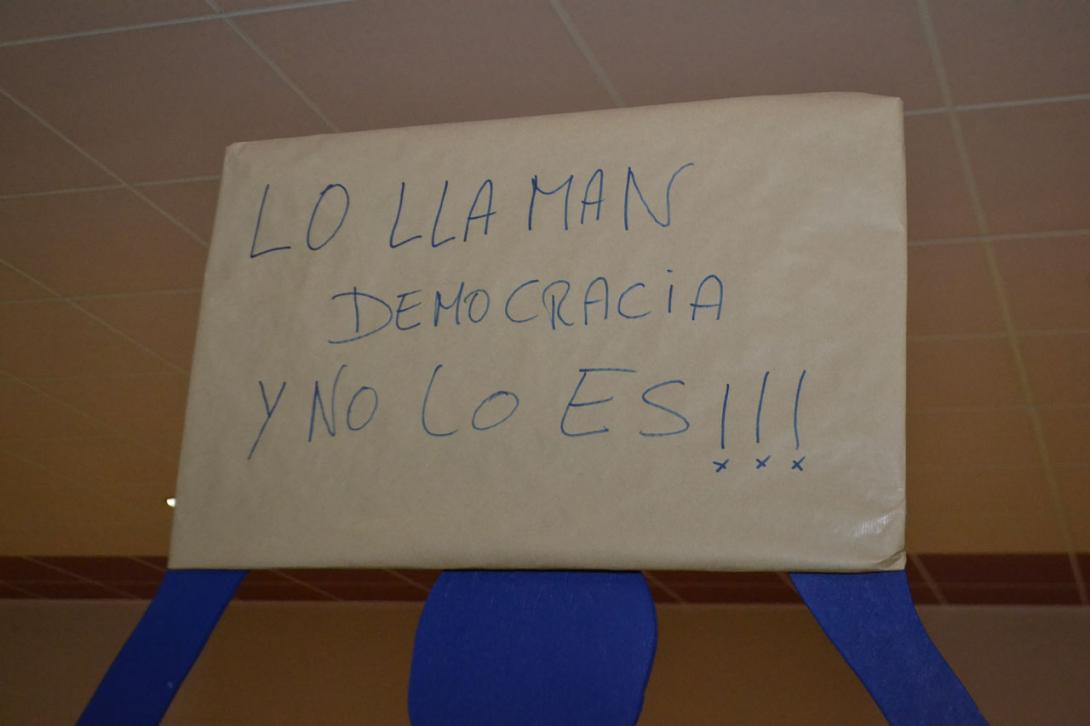 LO LLAMAN
DEMOCRACiA
Y NO LO ES!!!